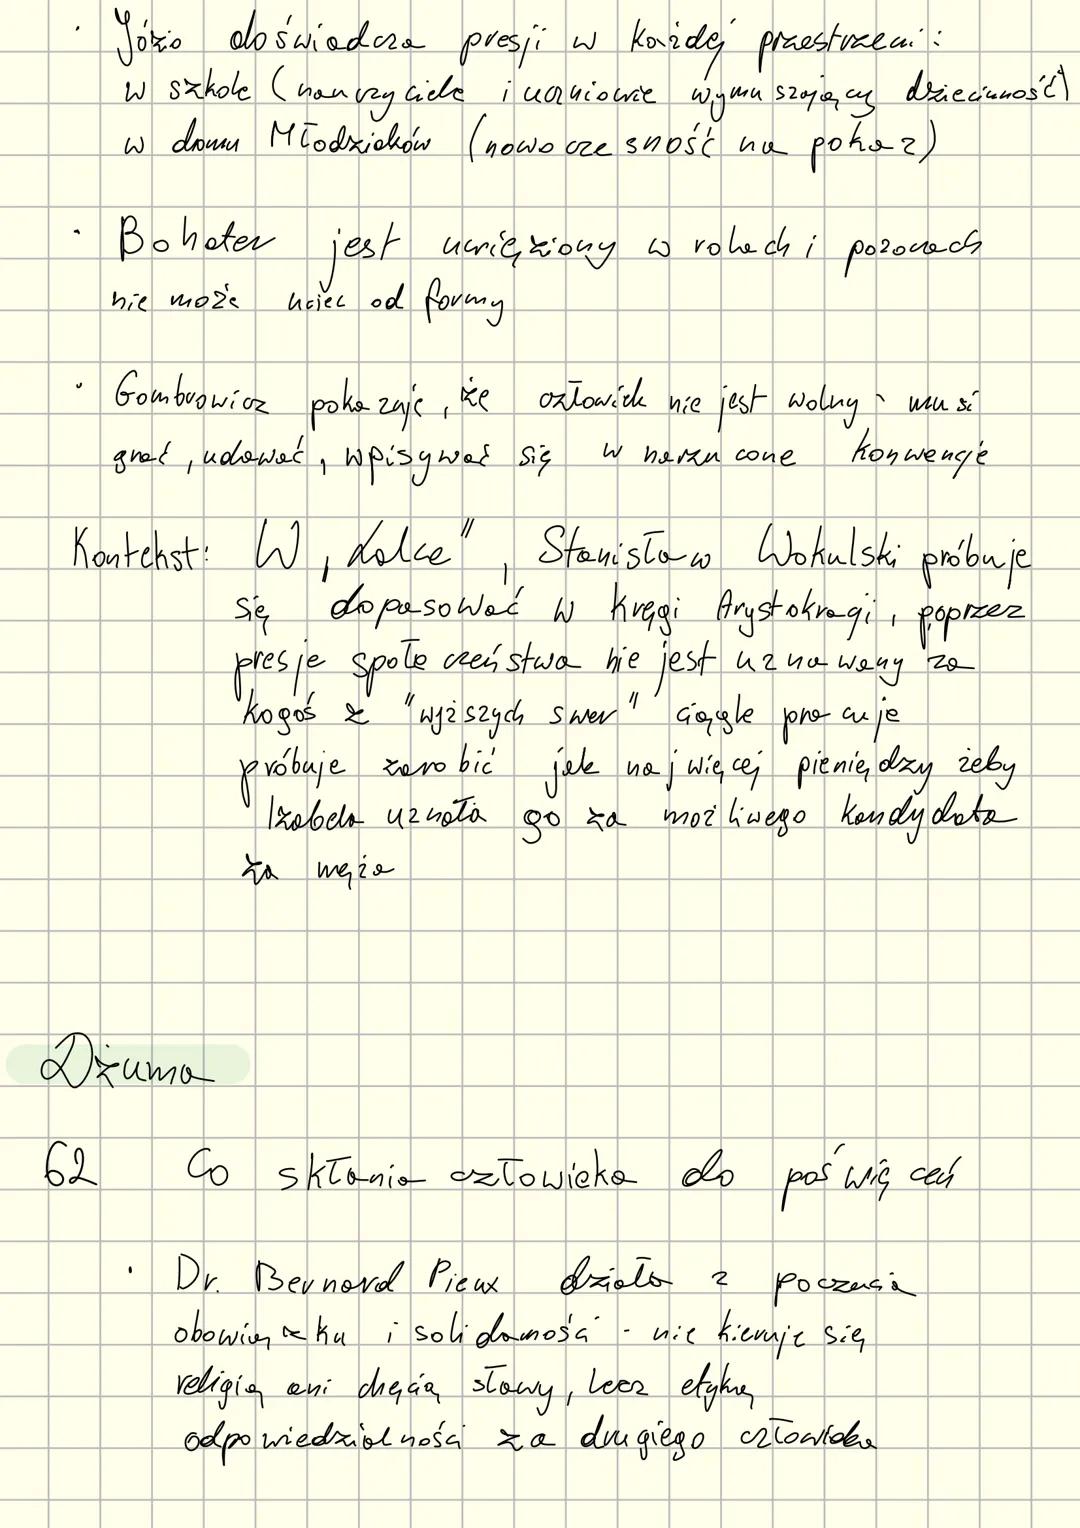 · Józio doświadcza presji w każdej przestrzeni:
w szkole (nauczyciele i uczniowie wymuszający dziecinność)
w domu Młodziaków (nowoczesność na pokaz)
· Bohater jest uwięziony w rolach i pozorach
nie może uciec od formy
· Gombrowicz pokazuje, że człowiek nie jest wolny - musi
grać, udawać, wpisywać się w narzucone konwencje
Kontekst: W „Lalce", Stanisław Wokulski próbuje
się dopasować w kręgi Arystokracji, poprzez
presje społeczeństwa nie jest uznawany za
kogoś z "wyższych swer" ciągle pracuje
próbuje zarobić jak najwięcej pieniędzy żeby
Izabela uznała go za możliwego kandydata
za męża
Dżuma
62 Co skłania człowieka do poświęceń
· Dr. Bernard Rieux działa z poczucia
obowiązku i solidarności - nie kieruje się
religią ani chęcią sławy, lecz etyką
odpowiedzialności za drugiego człowieka